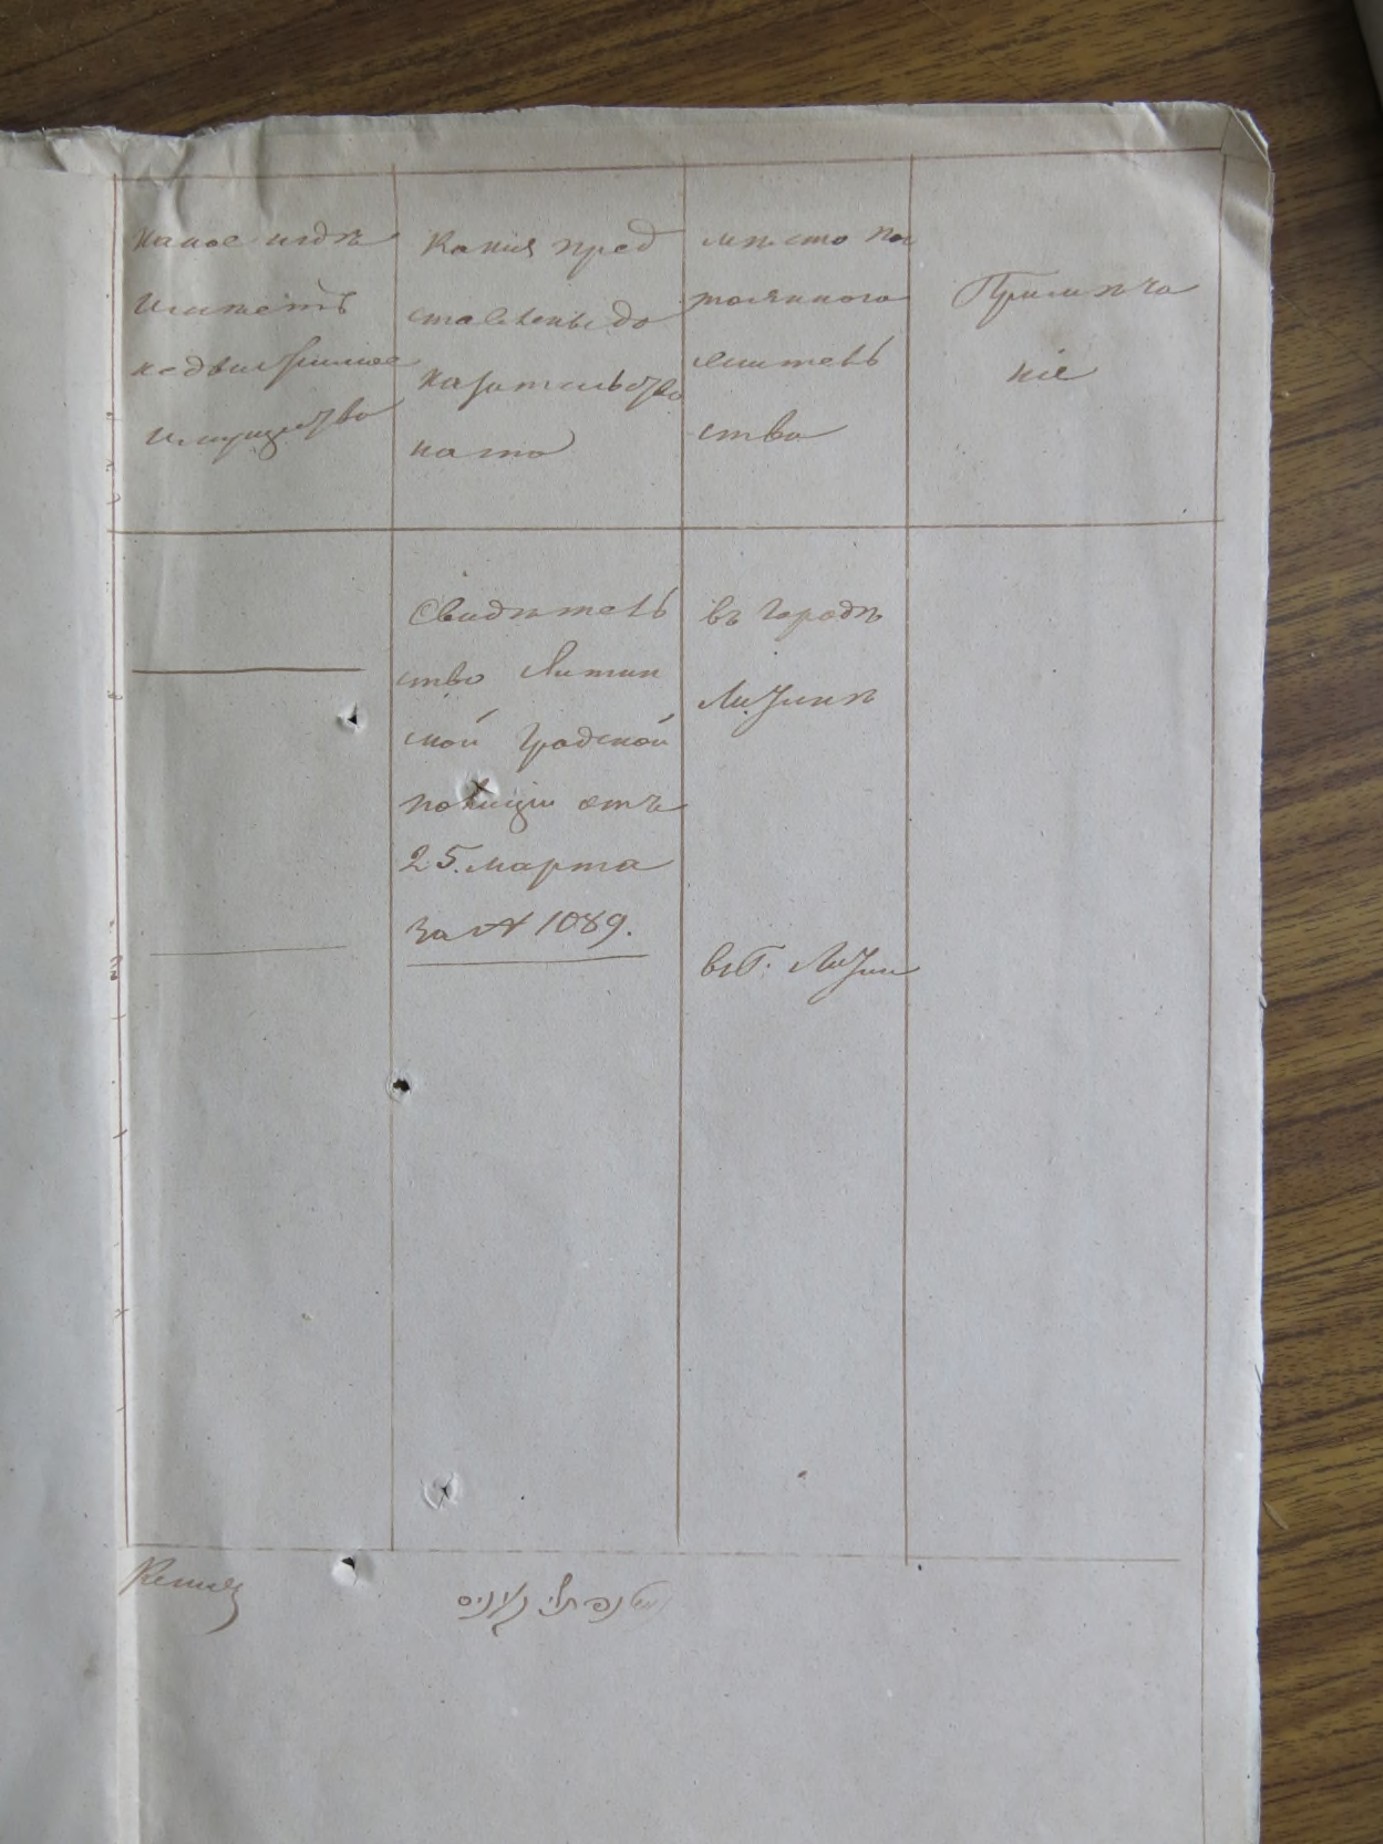 какое и гдѣ
имѣетъ
недвижимое
имущество
Какія пред
ставлены до
казательства
на то
мѣсто пос
тояннаго
жительь
ства
Примѣча
ніе
Свидѣтель
ство Литин
ской Градской
полиціи отъ
25. марта
за № 1089.
въ городѣ
Литинѣ
въ Г. Литин
נפתלי